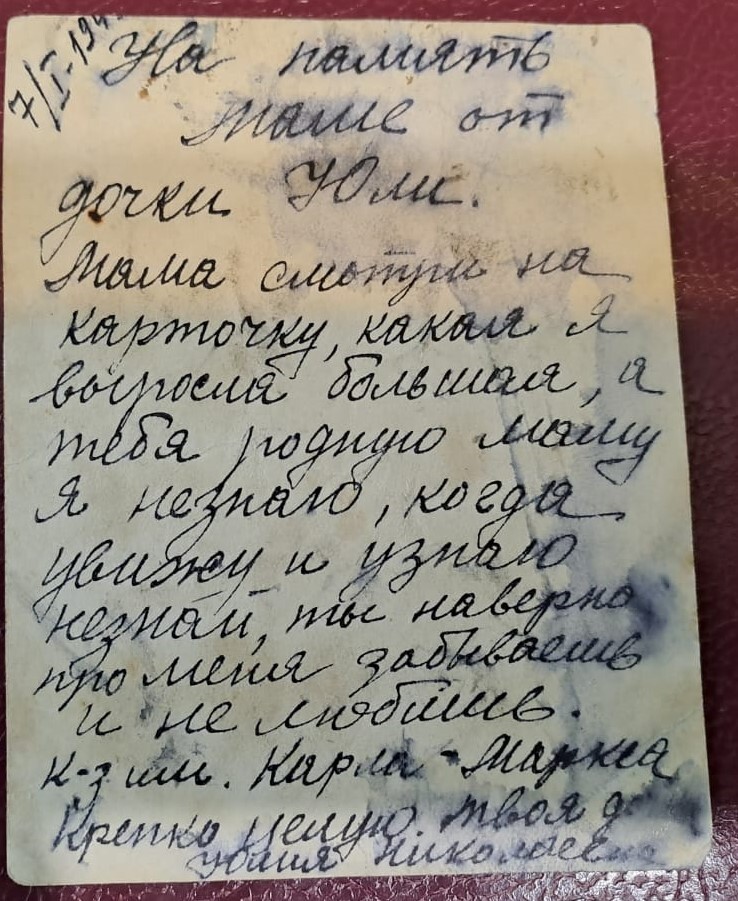 7/I-194
На память
маме от
дочки Юли.
Мама смотри на
карточку, какая я
выросла большая, а
тебя родную маму
я незнаю, когда
увижу и узнаю
незнаю, ты наверно
про меня забываешь
и не любишь.
К-з им. Карла-Маркса
Крепко целую твоя
Юлия Николаевна